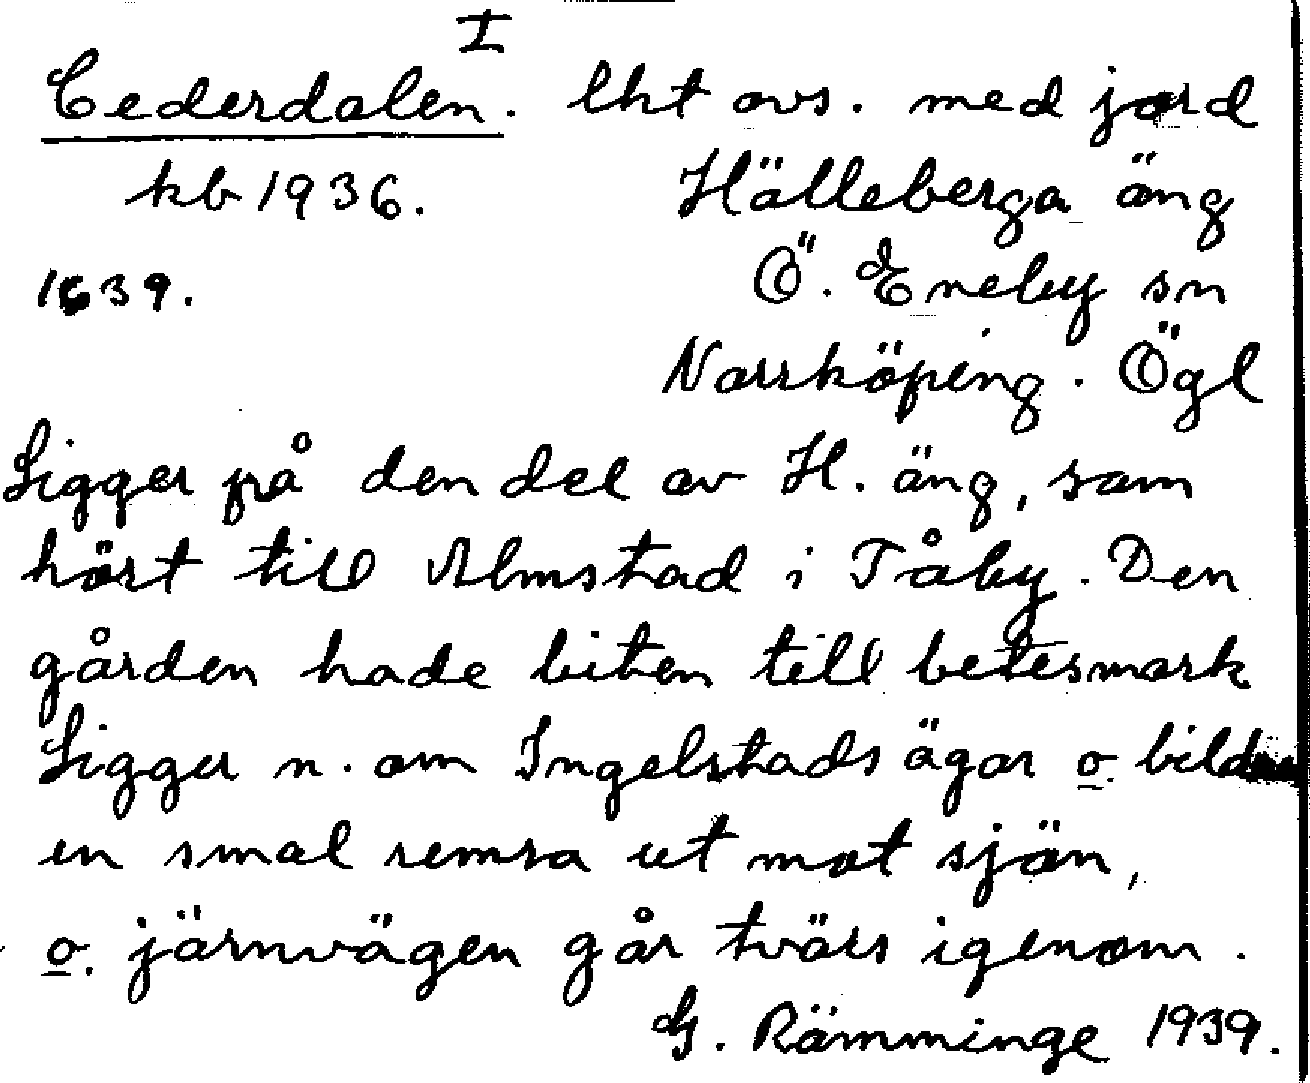 I
Cederdalen. lht avs. med jord
kb 1936. Hälleberga äng
1639. Ö. Eneby sn
Norrköping. Ögl
Ligger på den del av H. äng, som
hört till Almstad i Tåby. Den
gården hade biten till betesmark
Ligger n. om Ingelstads ägor o. bildar
en smal remsa ut mot sjön,
o. järnvägen går tvärs igenom.
G. Rämminge 1939.